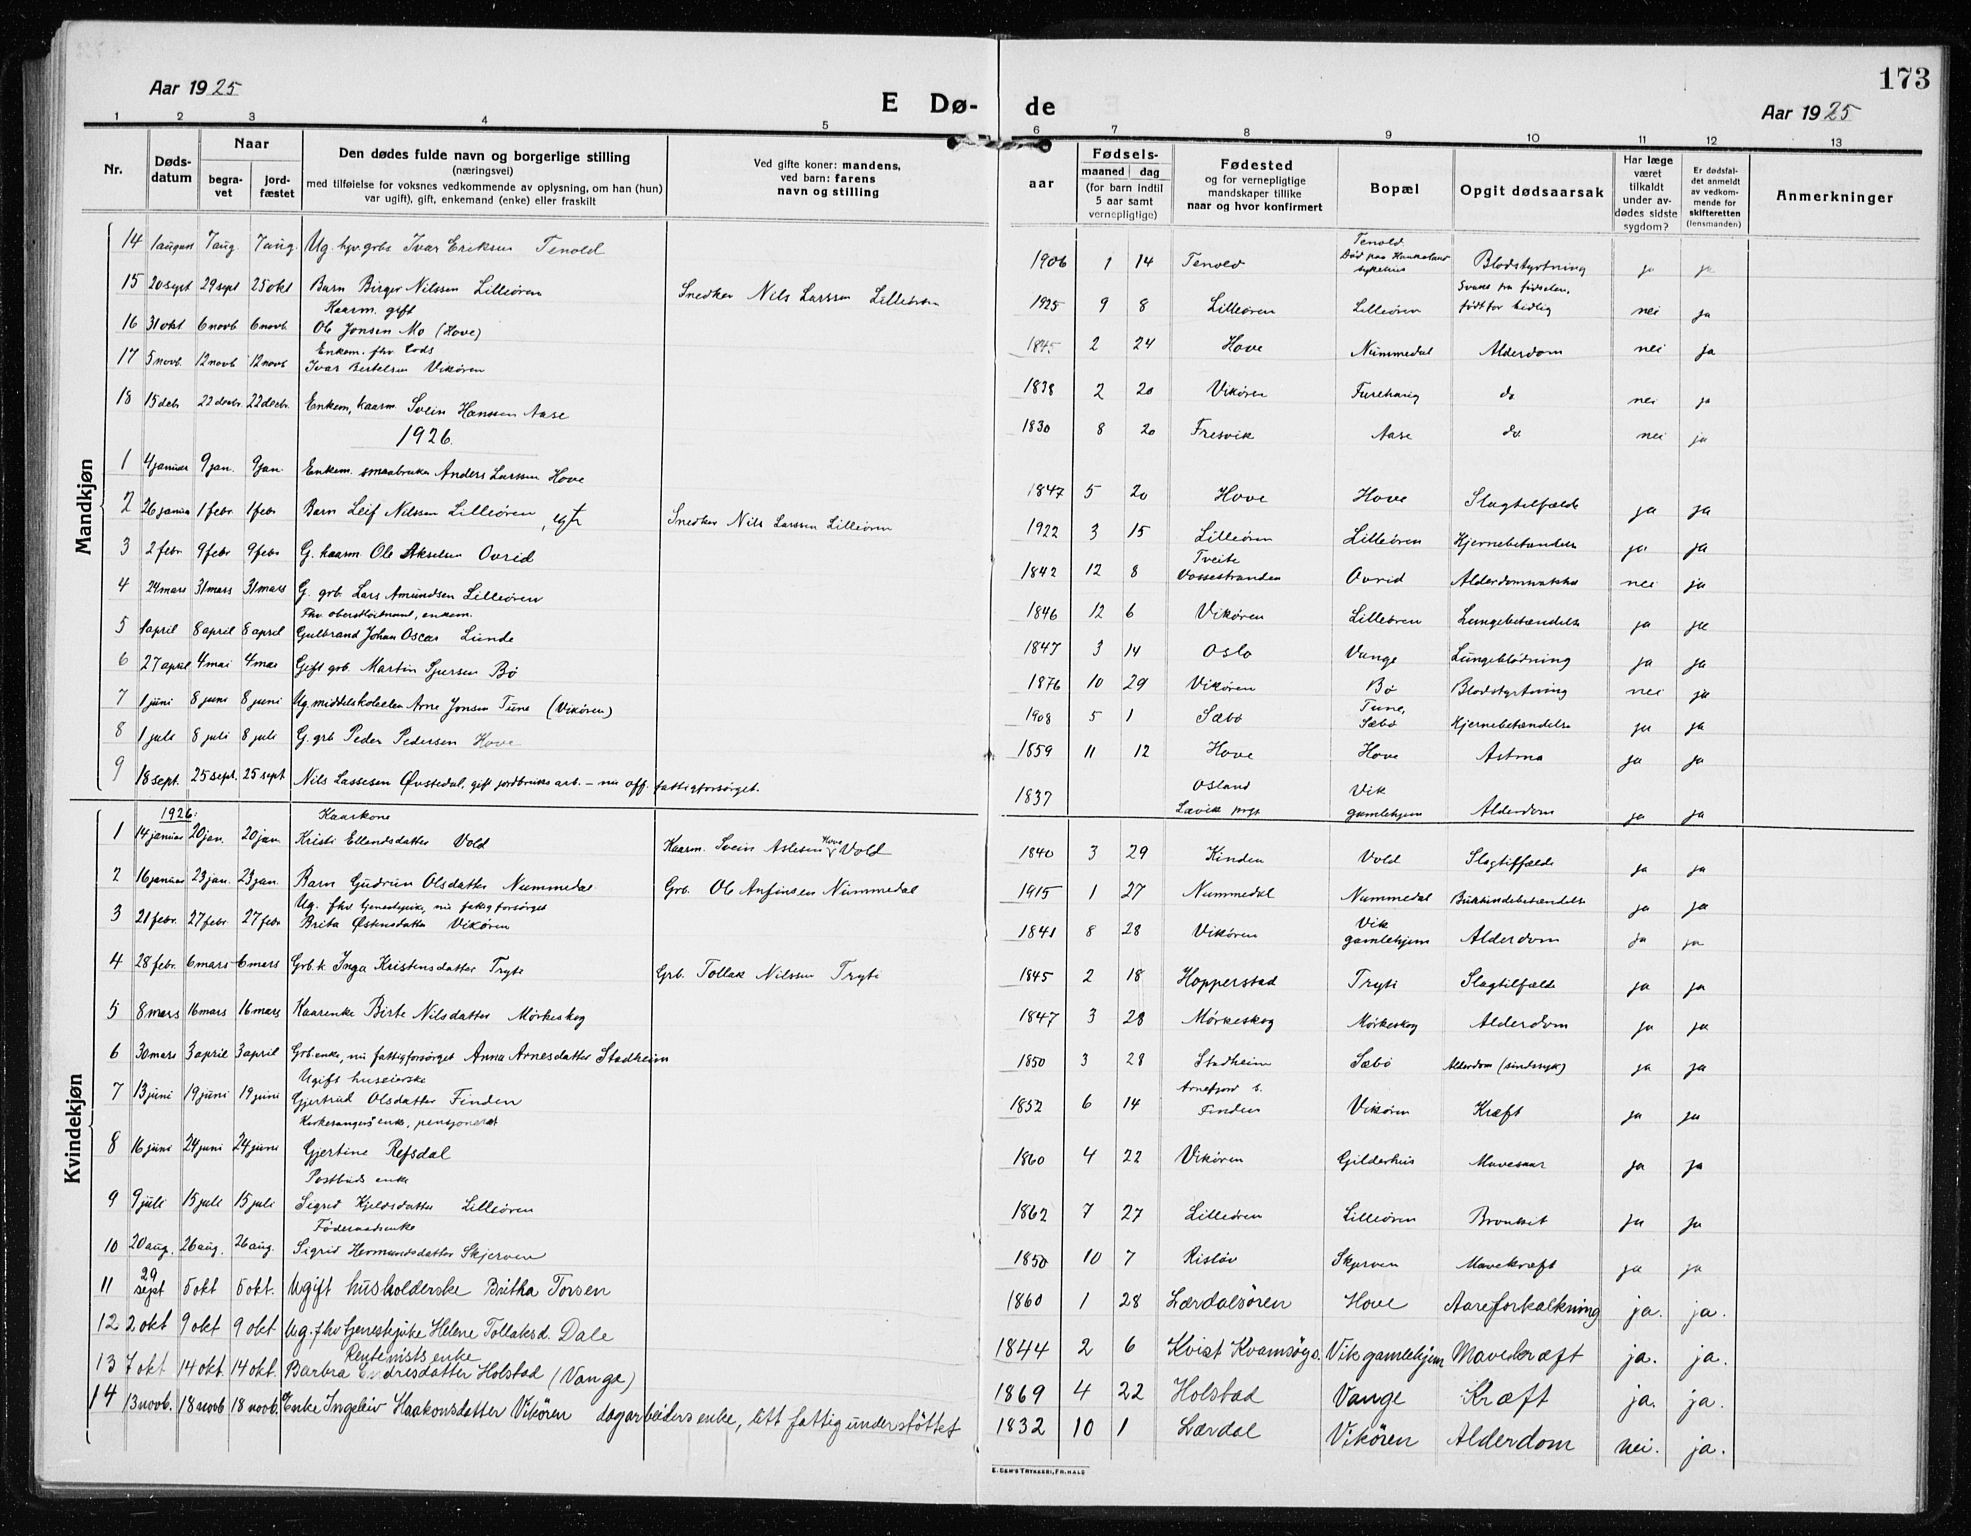 173
Aar 1925
E Dø-
de
Aar 1925
1 2 3 4 5 6 7 8 9 10 11 12 13
Nr.
Døds-
datum
Naar
begra-
vet
jord-
fæstet
Den dødes fulde navn og borgerlige stilling
(næringsvei)
med tilføielse for voksnes vedkommende av oplysning, om han (hun)
var ugift), gift, enkemand (enke) eller fraskilt
Ved gifte koner: mandens,
ved barn: farens
navn og stilling
Fødsels-
aar
maaned dag
(for barn indtil
5 aar samt
vernepligtige)
Fødested
og for vernepligtige
mandskaper tillike
naar og hvor konfirmert
Bopæl
Opgit dødsaarsak
Har læge
været
tilkaldt
under av-
dødes sidste
sygdom?
Er dødsfal-
det anmeldt
av vedkom-
mende for
skifteretten
(lensmanden)
Anmerkninger
Mandkjøn
14 1 august 7 aug. 7 aug. Ug. hjv. grbs Ivar Eriksen Tenold 1906 1 14 Tenold Tenold. Død paa Haukeland sykehus Blodstyrtning ja ja
15 20 sept 29 sept 25 okt Barn Birger Nilssen Lilleören Snedker Nils Larssen Lilleören 1925 9 8 Lilleören Lilleören Svak fra fødselen, født for tidlig nei ja
16 31 okt 6 novb 6 novb. Kaarm. gift Ole Jonsen Mo (Hove) 1845 2 24 Hove Nummedal Alderdom nei ja
17 5 novb. 12 novb 12 novb Enkem. fhv. Lods Ivar Bertelsen Vikören 1838 2 20 Vikören Furehaug do nei ja
18 15 debr 22 decbr. 22 decbr. Enkem, kaarm. Svein Hanssen Aase 1830 8 20 Fresvik Aase do. nei ja
1926.
1 4 januar 9 jan. 9 jan. Enkem. smaabruker Anders Larssen Hove 1847 5 20 Hove Hove Slagtilfælde ja ja
2 26 januar 1 febr. 1 febr Barn Leif Nilssen Lilleören Snedker Nils Larssen Lilleören 1922 3 15 Lilleören Lilleören Hjernebetændelse ja ja
3 2 febr. 9 febr 9 febr G. kaarm. Ole Akselsen Ovrid 1842 12 8 Tveite Vossestranden Ovrid Alderdomssvakhet nei ja
4 24 mars 31 mars 31 mars G. grb. Lars Amundsen Lilleören 1846 12 6 Vikören Lilleören Lungebetændelse ja ja
5 1 april 8 april 8 april Fhv. oberstløitnant, enkem. Gulbrand Johan Oscar Lunde 1847 3 14 Oslo Vange Lungeblödning ja ja
6 27 april 4 mai 4 mai Gift grb. Martin Sjursen Bö 1876 10 29 Vikören Bö Blodstyrtning nei ja
7 1 juni 8 juni 8 juni Ug. middelskoleelev Arne Jonsen Tune (Vikören) 1908 5 1 Sæbö Tune, Sæbö Hjernebetændelse ja ja
8 1 juli 8 juli 8 juli G. grb Peder Pedersen Hove 1859 11 12 Hove Hove Astma ja ja
9 18 sept. 25 sept. 25 sept Nils Lassesen Øvstedal, gift jordbruksarb. - nu off. fattigforsørget. 1837 Osland Lavik prgj Vik gamlehjem Alderdom ja ja
Kvindekjøn
1926:
1 14 januar 20 jan. 20 jan. Kaarkone Kristi Ellendsdatter Vold Kaarm. Svein Aslesen Hove Vold 1840 3 29 Kinden Vold Slagtilfælde ja ja
2 16 januar 23 jan. 23 jan. Barn Gudrun Olsdatter Nummedal Grb. Ole Anfinsen Nummedal 1915 1 27 Nummedal Nummedal Bukhindebetændelse ja ja
3 21 febr. 27 febr 27 febr Ug. fhv tjenestepike, nu fattigforsørget Brita Østensdatter Vikören 1841 8 28 Vikören Vik gamlehjem Alderdom ja ja
4 28 febr. 6 mars 6 mars Grb.k. Inga Kristensdatter Tryti Grb. Tollak Nilssen Tryti 1845 2 18 Hopperstad Tryti Slagtilfælde ja ja
5 8 mars 16 mars 16 mars Kaarenke Birte Nilsdatter Mörkeskog 1847 3 28 Mörkeskog Mörkeskog Alderdom ja ja
6 30 mars 3 april 3 april Grb.enke, nu fattigforsørget Anna Arnesdatter Stadheim 1850 3 28 Stadheim Sæbö Alderdom (sindssyk) ja ja
7 13 juni 19 juni 19 juni Ugift huseierske Gjertrud Olsdatter Finden 1852 6 14 Arnefjord s. Finden Vikören Kræft ja ja
8 16 juni 24 juni 24 juni Kirkesangers enke, pensjonert Gjertine Refsdal 1860 4 22 Vikören Gilderhus Mavesaar ja ja
9 9 juli 15 juli 15 juli Postbuds enke Sigrid Kjeldsdatter Lilleören 1862 7 27 Lilleören Lilleören Bronkit ja ja
10 20 aug. 26 aug. 26 aug. Föderaadsenke Sigrid Hermundsdatter Skjerven 1850 10 7 Rislöv Skjerven Mavekræft ja ja
11 29 sept 5 okt 5 okt. Ugift husholderske Britha Torsen 1860 1 28 Lærdalsören Hove Aareforkalkning ja. ja.
12 2 okt 9 okt 9 okt Ug. fhv tjenestepike Helene Tollaksd. Dale 1844 2 6 Kvist Kvamsöy s. Vik gamlehjem Mavekræft ja. ja.
13 7 okt 14 okt. 14 okt. Rentenists enke Barbra Endresdatter Holstad (Vange) 1869 4 22 Holstad Vange Kræft ja. ja.
14 13 novb. 18 novb 18 novb. Enke Ingeleiv Haakonsdatter Vikören dagarbeiders enke, litt fattigunderstöttet 1832 10 1 Lærdal Vikören Alderdom nei. ja.
E. SEM'S TRYKKERI, FR.HALD